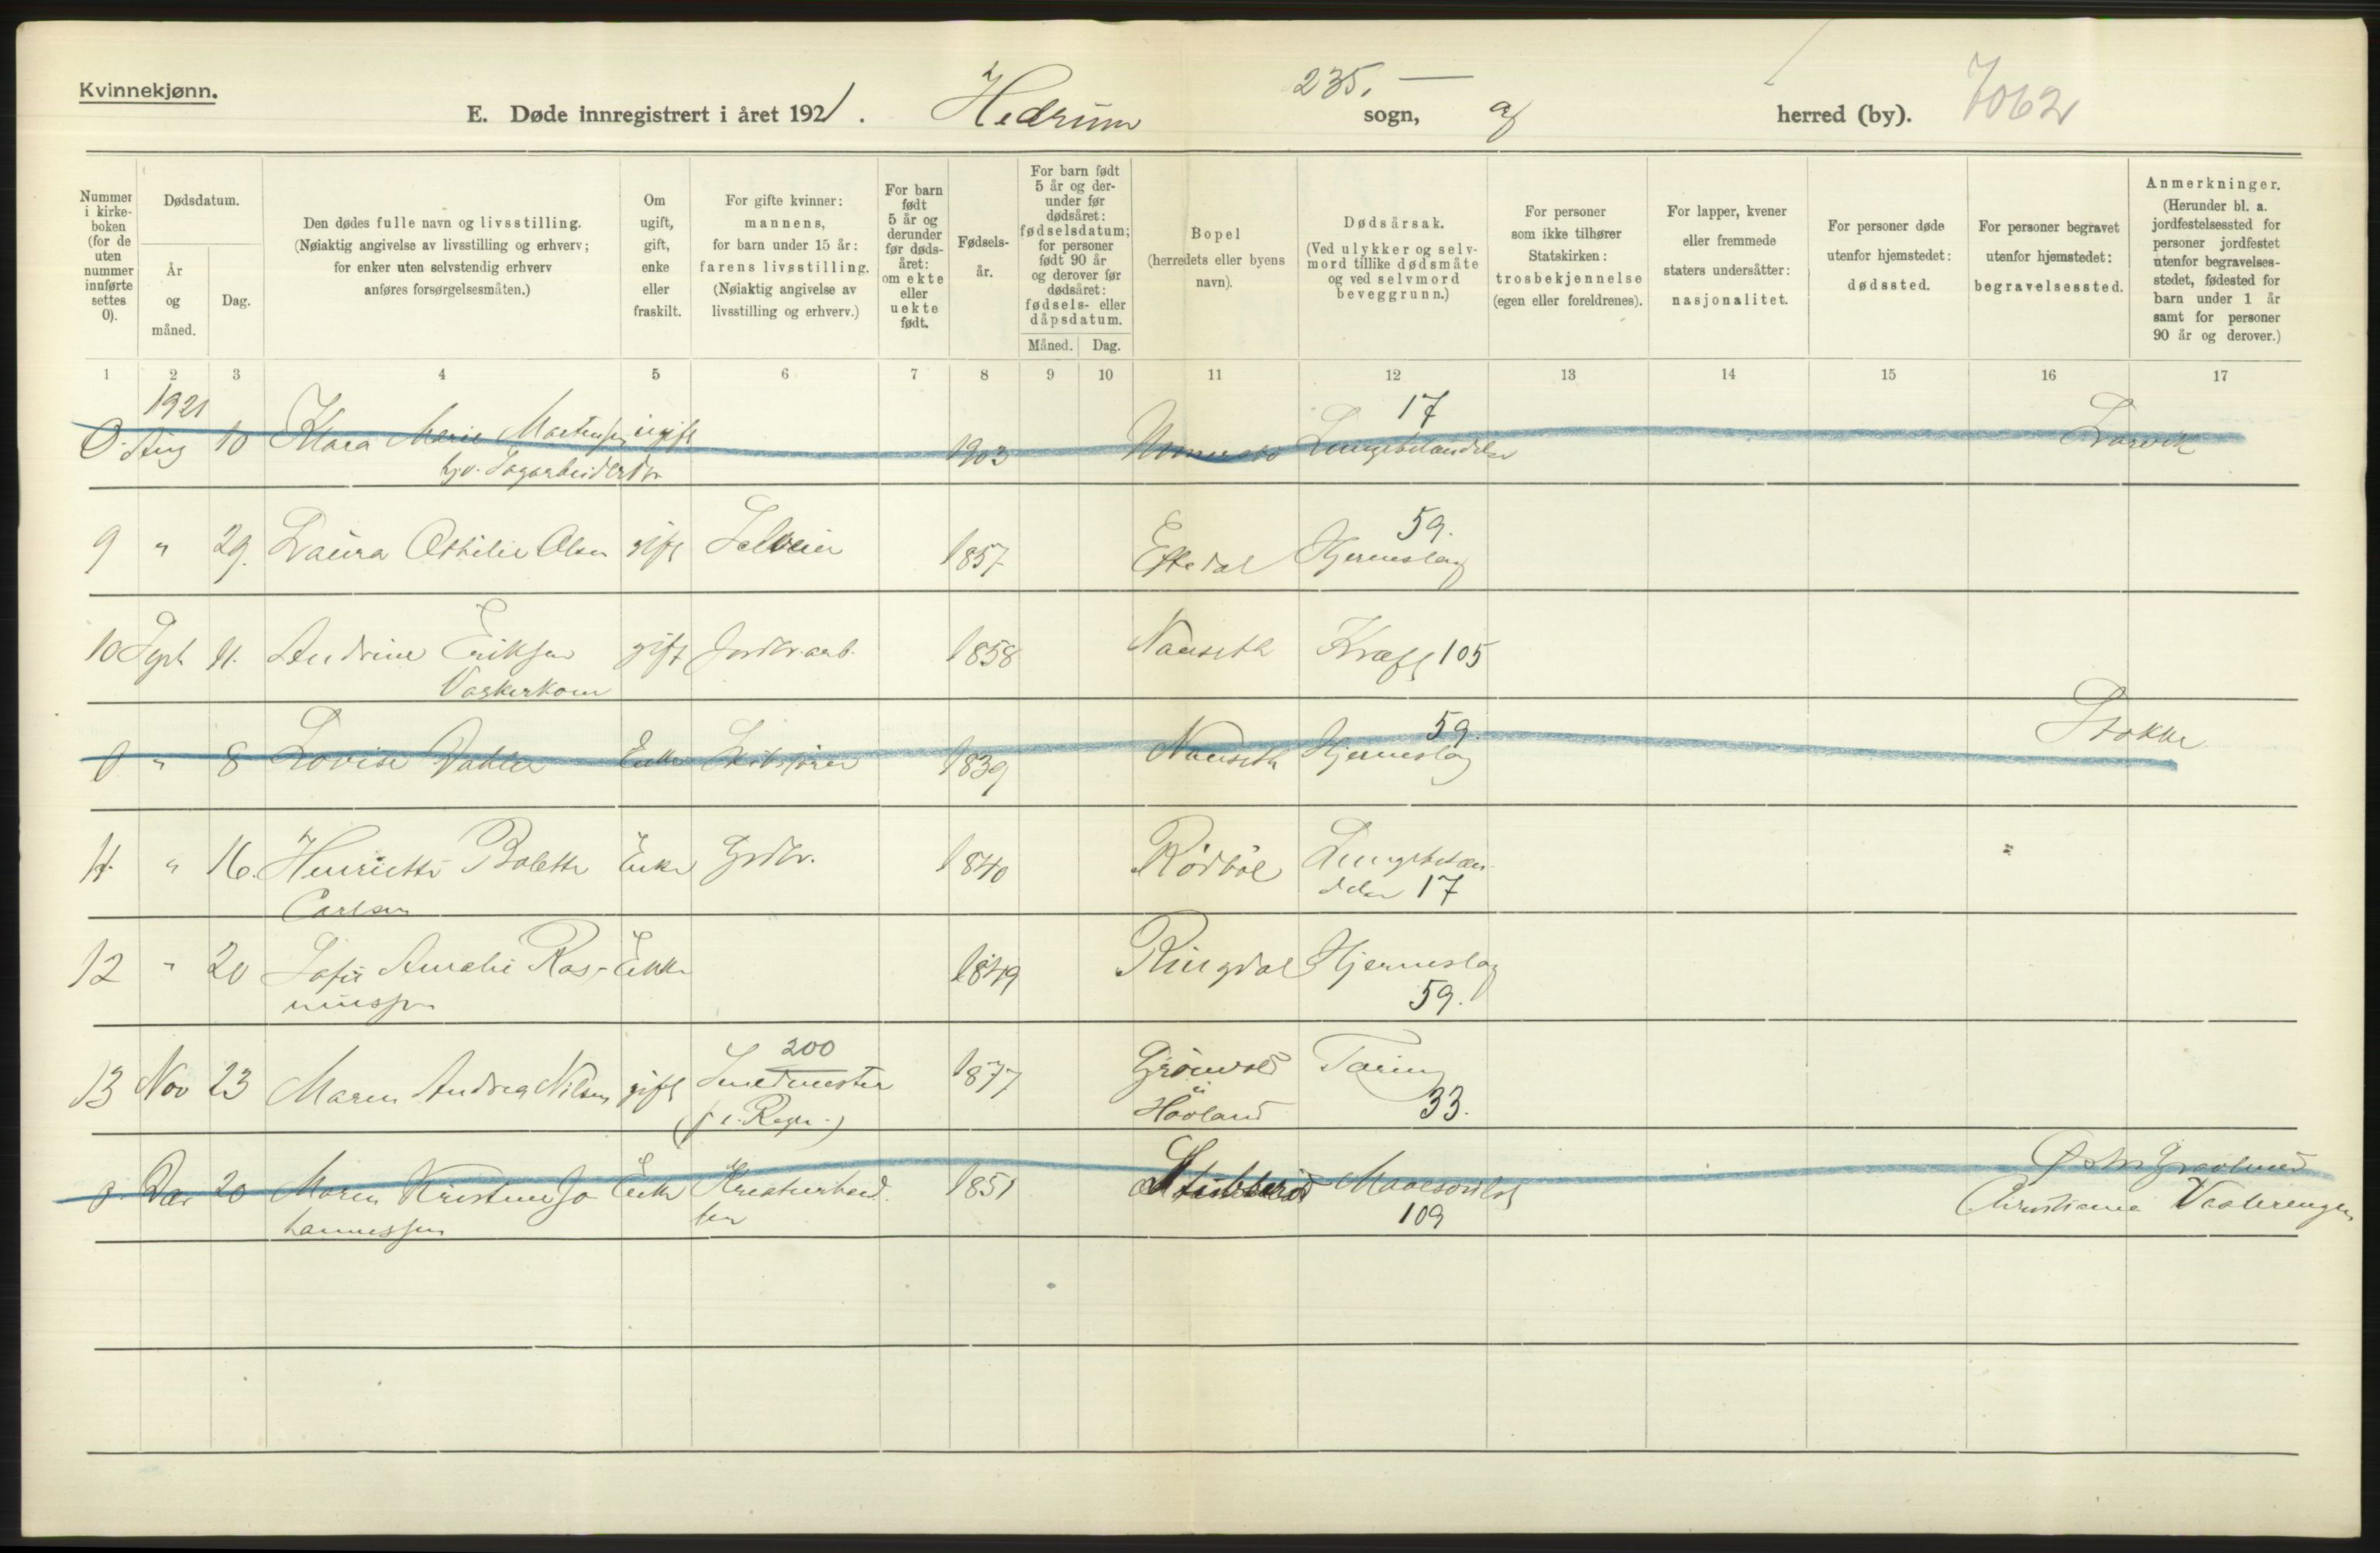 Kvinnekjønn.
E. Døde innregistrert i året 1921. Hedrum 235. — sogn, herred (by). 7062
Nummer i kirke-boken (for de uten nummer innførte settes 0).
Dødsdatum.
År og måned.
Dag.
Den dødes fulle navn og livsstilling.
(Nøiaktig angivelse av livsstilling og erhverv;
for enker uten selvstendig erhverv
anføres forsørgelsesmåten.)
Om
ugift,
gift,
enke
eller
fraskilt.
For gifte kvinner:
mannens,
for barn under 15 år:
farens livsstilling.
(Nøiaktig angivelse av
livsstilling og erhverv.)
For barn
født
5 år og
derunder
før døds-
året:
om ekte
eller
uekte
født.
Fødsels-
år.
For barn født
5 år og der-
under før
dødsåret:
fødselsdatum;
for personer
født 90 år
og derover før
dødsåret:
fødsels- eller
dåpsdatum.
Måned. Dag.
Bopel
(herredets eller byens
navn).
Dødsårsak.
(Ved ulykker og selv-
mord tillike dødsmåte
og ved selvmord
beveggrunn.)
For personer
som ikke tilhører
Statskirken:
trosbekjennelse
(egen eller foreldrenes).
For lapper, kvener
eller fremmede
staters undersåtter:
nasjonalitet.
For personer døde
utenfor hjemstedet:
dødssted.
For personer begravet
utenfor hjemstedet:
begravelsessted.
Anmerkninger.
(Herunder bl. a.
jordfestelsessted for
personer jordfestet
utenfor begravelses-
stedet, fødested for
barn under 1 år
samt for personer
90 år og derover.)
1 2 3 4 5 6 7 8 9 10 11 12 13 14 15 16 17
1921 17
0. Aug 10 Klara Marie Martinsen ugift 1903 Lungebetændelse Larvik
hjv. Sagarbeiderdtr
59.
9 " 29. Laura Othilie Olsen gift Selveier 1857. Eftedal Hjerneslag
10 Sept 11. Andrine Eriksen gift Jordbr. arb. 1858 Nanseth Kræft 105
Vaskerkone
59.
0 " 8 Lovise Dahler Enke 1839 Nanseth Hjerneslag Stokke
11. " 16. Henriette Bolette Enke Grdbr. 1840 Rödböl Lungebetæn-
Carlsen delse 17
12 " 20 Sofie Amalie Ras- Enke 1849 Ringdal Hjerneslag
mussen 59.
200
13 Nov 23 Maren Andrea Nilsen gift Smedmester 1877 Grönvold Tæring
i Hovland 33.
0. Dec 20 Maren Kristine Jo Enke Kreaturhand- 1851 Mavesvulst Østre Gravlund
hannessen ler 109 Christiania Vaalerengen